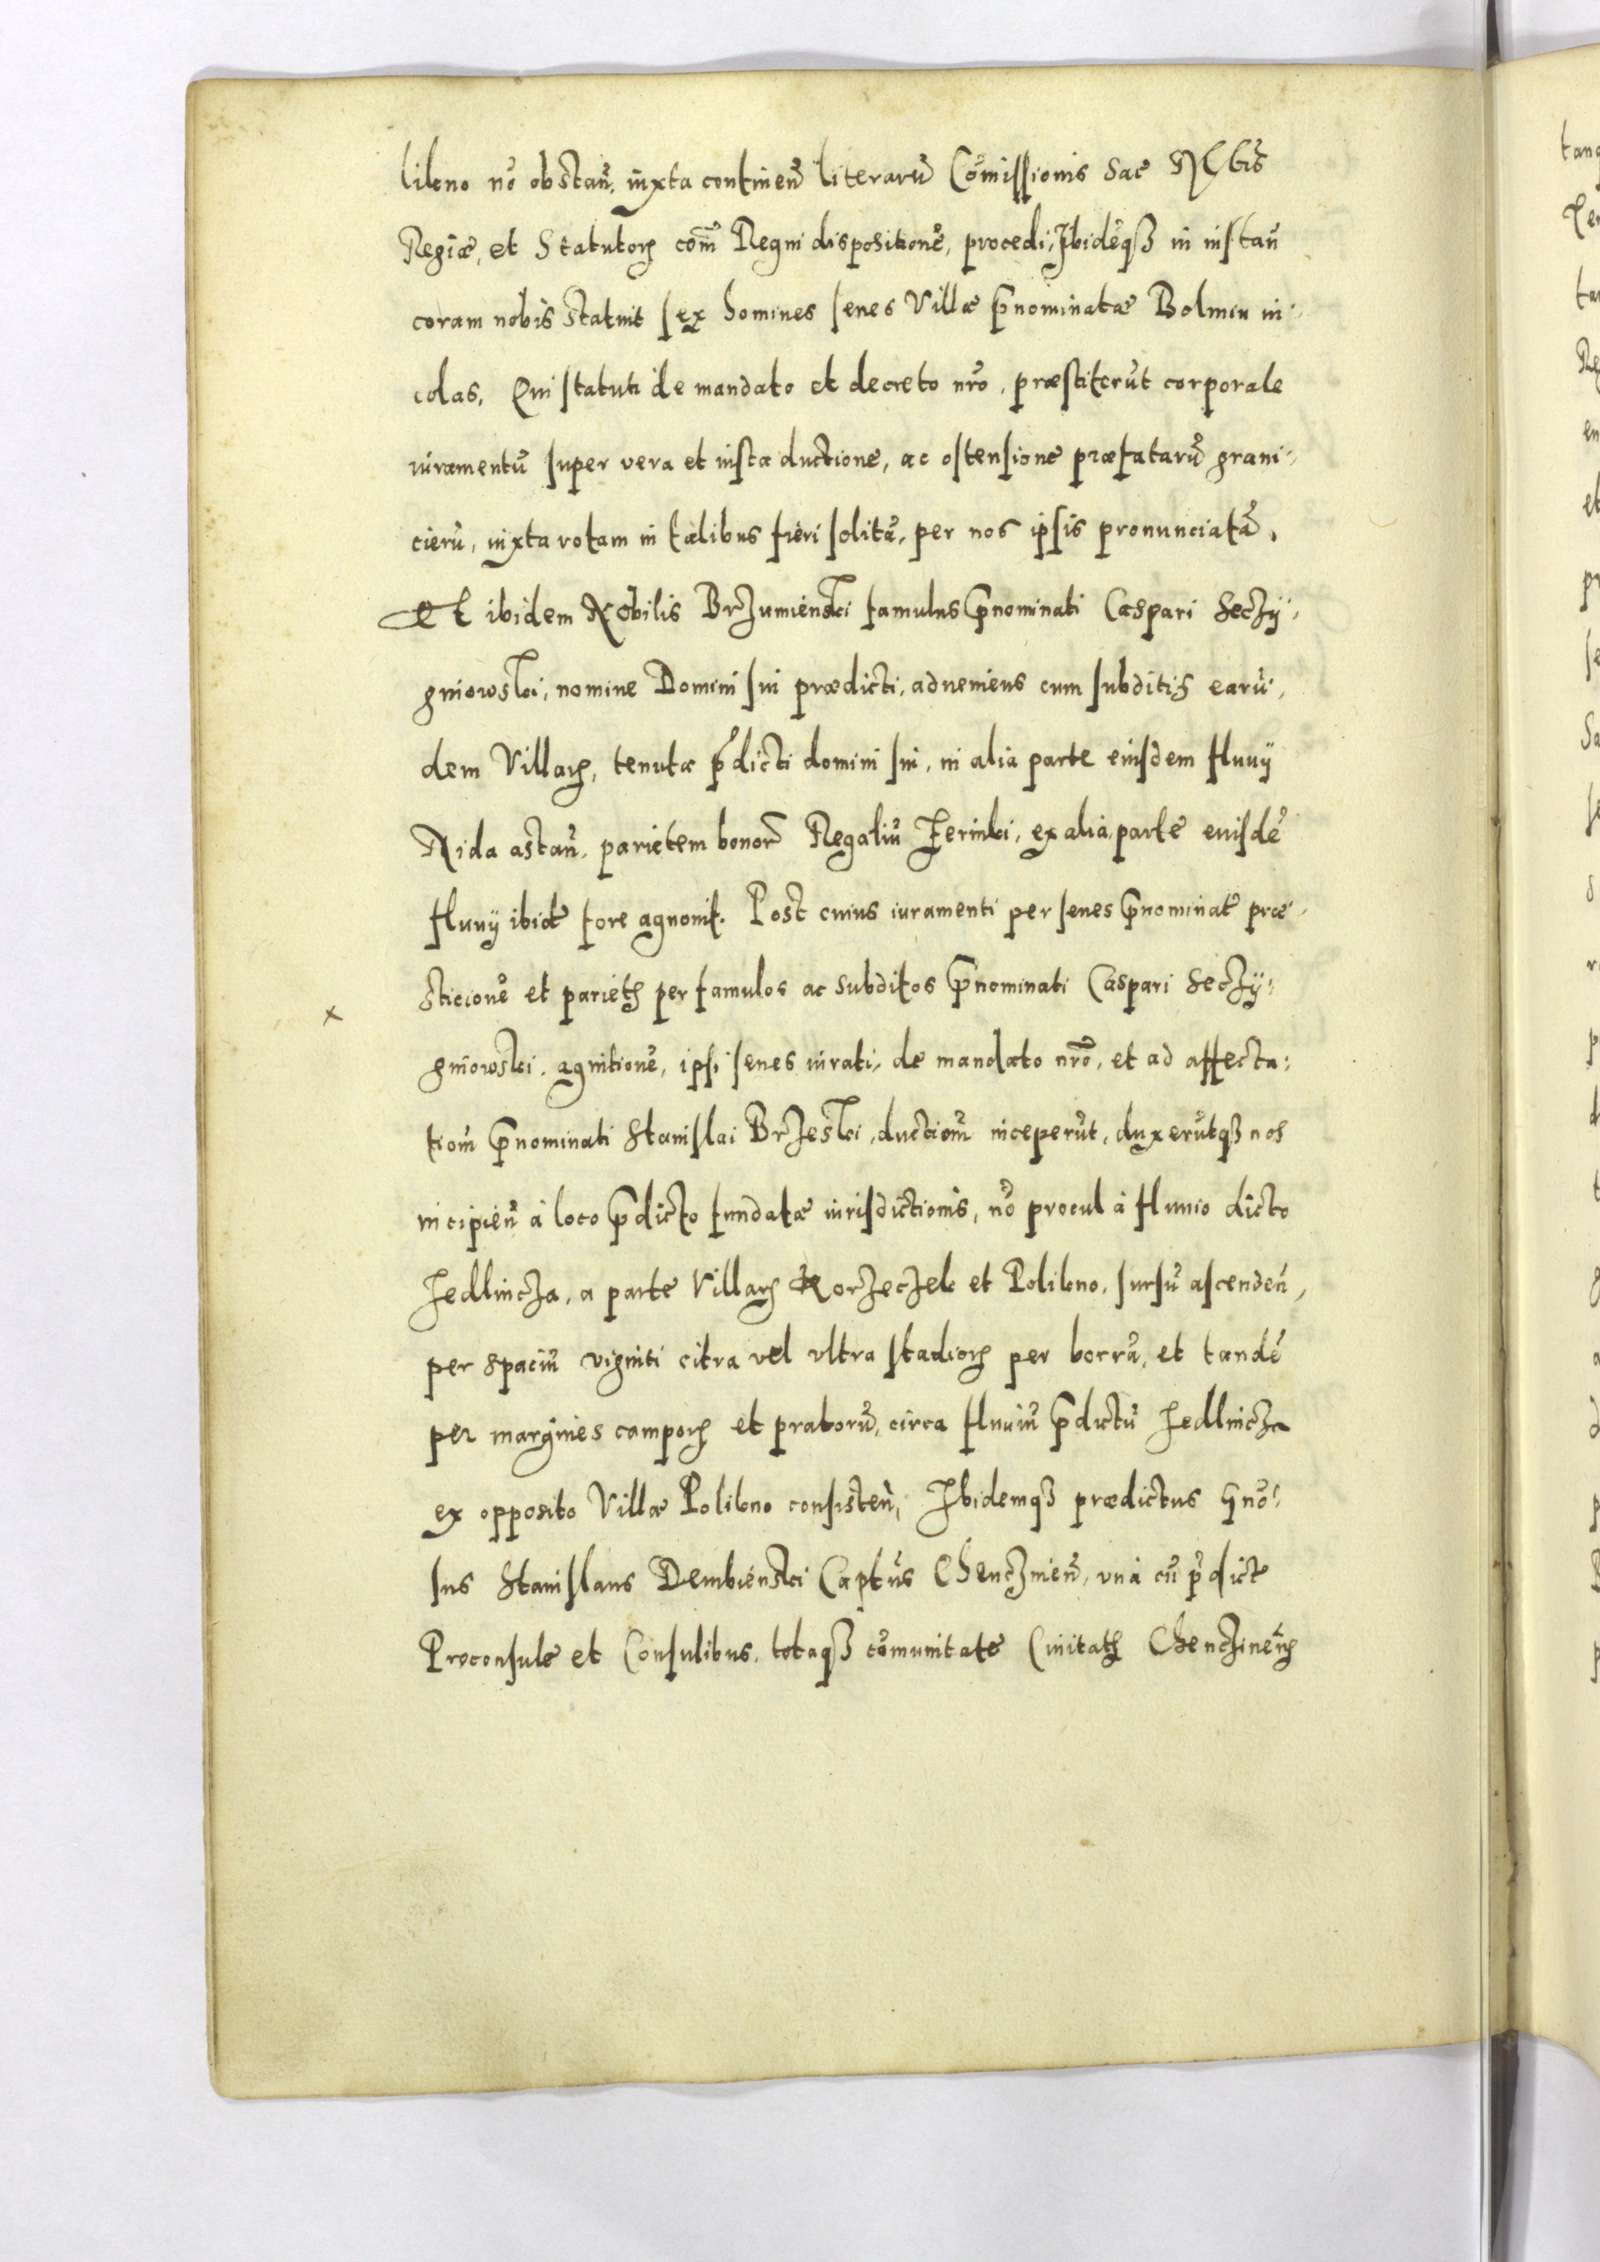 likno nõ obstañ, iuxta contineñ literarũ Cõmissionis Sac Mtis
Regiæ, et Statutorꝝ com̃ Regni dispositionẽ, procedi, Ibidẽqꝫ in instañ
coram nobis statuit sex homines senes Villæ p̃nominatæ Bolmin in-
colas, Qui statuti de mandato et decreto nr̃o, præstiterũt corporale
iuramentũ super vera et iusta ductione, ac ostensione præfatarũ grani-
cierũ, iuxta rotam in talibus fieri solitã, per nos ipsis pronunciatã,
Et ibidem Nobilis Brzumienski famulus p̃nominati Caspari Seczÿ-
gniowski, nomine Domini sui prædicti, adueniens cum subditis earũ-
dem Villarꝝ, tenutæ p̃dicti domini sui, in alia parte eiusdem fluuÿ
Nida astañ, parietem bonor̃ Regaliũ Zerniki, ex alia parte eiusdẽ
fluuÿ ibidẽ fore agnouit. Post cuius iuramenti per senes p̃nominat præ-
sticionẽ et parietꝭ per famulos ac subditos p̃nominati Caspari Seczÿ-
gniowski, agnitionẽ, ipsi senes iurati, de mandato nr̃o, et ad affecta-
tiom̃ p̃nominati Stanislai Brzeski, ductiom̃ inceperũt, duxerũtqꝫ nos
incipieñ à loco p̃dicto fundatæ iurisdictionis, nõ procul à fluuio dicto
Jedlnicza, a parte Villarꝝ Korzeczek et Polikno, sursũ ascendeñ,
per spaciũ viginti citra vel vltra stadiorꝝ per borrã, et tandẽ
per margines camporꝝ et pratorũ, circa fluuiũ p̃dictũ Jedlnicza
ex opposito Villæ Polikno consisteñ, Ibidemqꝫ prædictus Gño-
sus Stanislaus Dembienski Captũs Chenczineñ, vnà cũ p̃dict
Proconsule et Consulibus, totaqꝫ cõmunitate Ciuitatꝭ Chenczineñꝭ